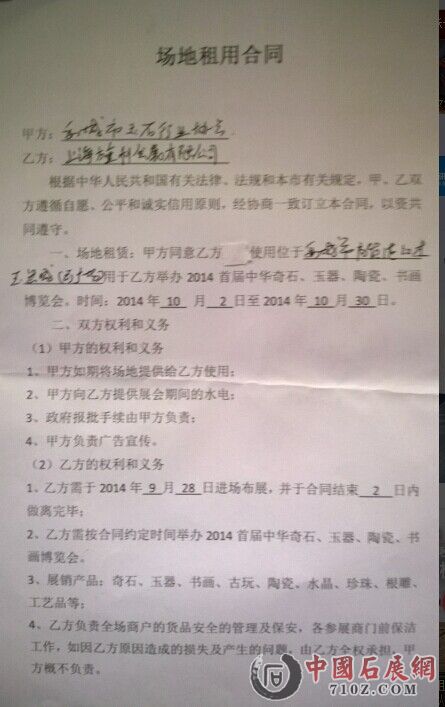 场地租用合同
甲方:市玉石行业协会
乙方:上海金有限公司
根据中华人民共和国有关法律、法规和本市有关规定,甲、乙双
方遵循自愿、公平和诚实信用原则,经协商一致订立本合同,以资共
同遵守。
一、场地租赁:甲方同意乙方 使用位于
用于乙方举办 2014 首届中华奇石、玉器、陶瓷、书画
博览会。时间:2014 年 10 月 2 日至 2014 年 10 月 30 日。
二、双方权利和义务
(1)甲方的权利和义务
1、甲方如期将场地提供给乙方使用;
2、甲方向乙方提供展会期间的水电;
3、政府报批手续由甲方负责;
4、甲方负责广告宣传。
(2)乙方的权利和义务
1、乙方需于 2014 年 9 月 28 日进场布展,并于合同结束 2 日内
做离完毕;
2、乙方需按合同约定时间举办 2014 首届中华奇石、玉器、陶瓷、书
画博览会。
3、展销产品:奇石、玉器、书画、古玩、陶瓷、水晶、珍珠、根雕、
工艺品等;
4、乙方负责全场商户的货品安全的管理及保安,各参展商门前保洁
工作,如因乙方原因造成的损失及产生的问题,由乙方全权承担,甲
方概不负责。
中國石展網
710Z.com